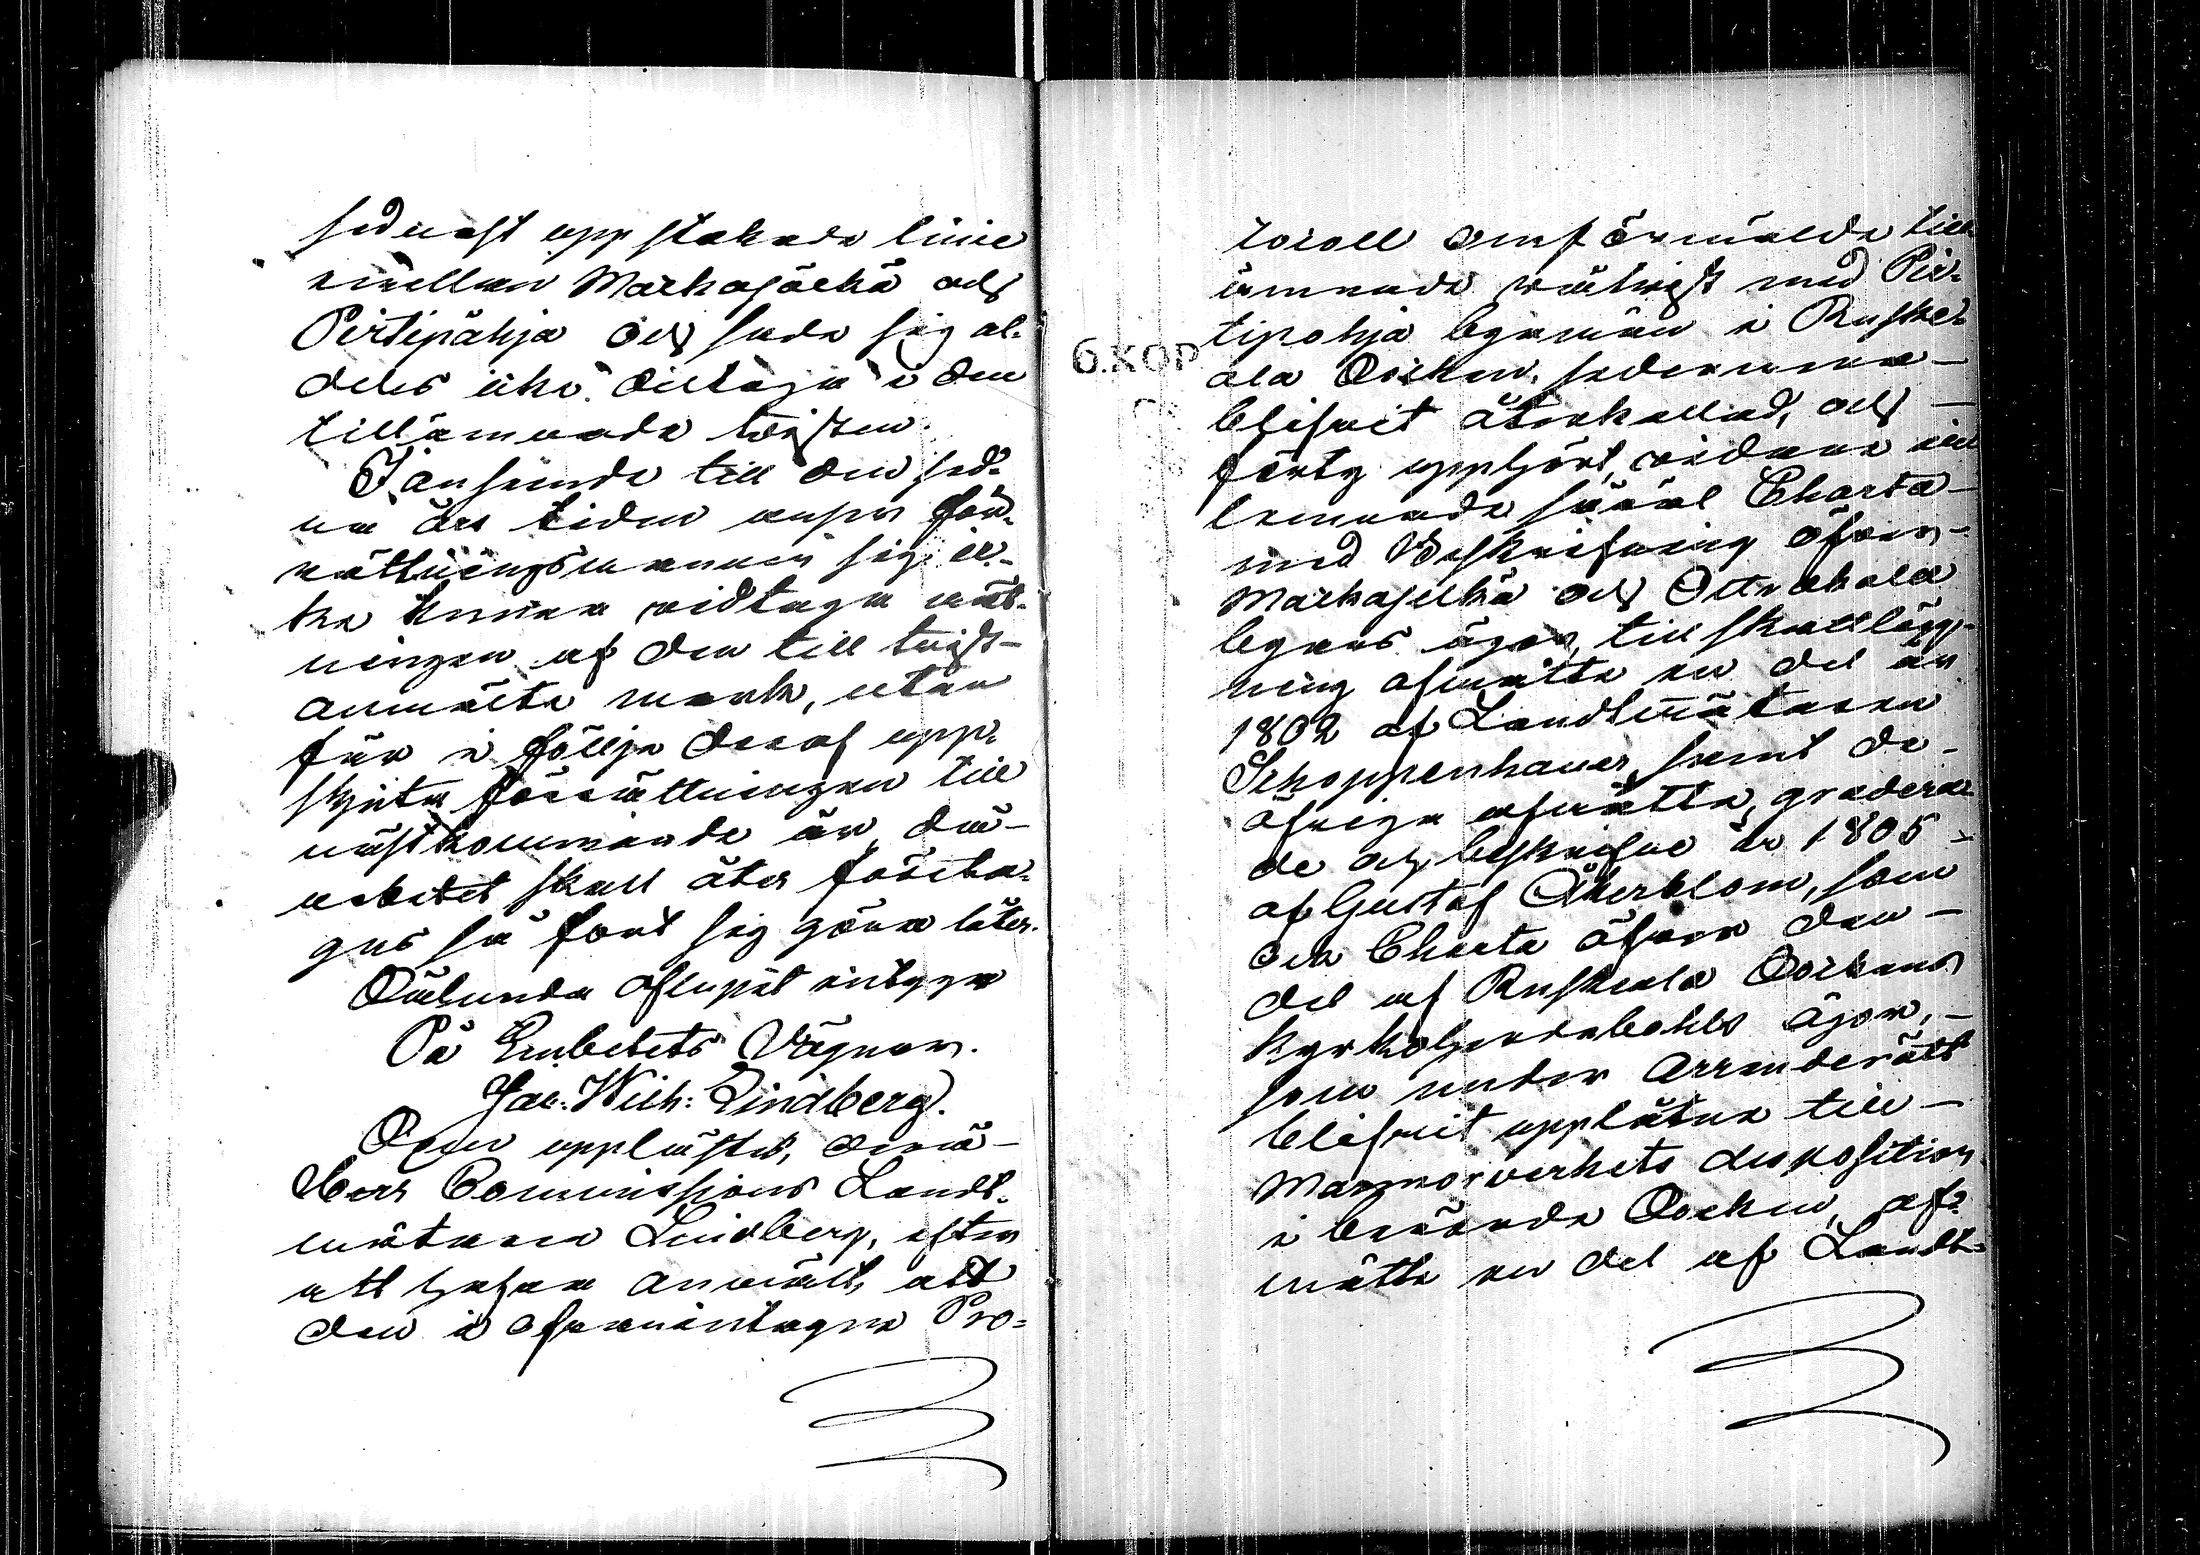 sednast uppstakade linie
emellan Markajäckä och
Pirtipåhja och sade sig al-
deles icke deltaga i den
tillämnade tvisten.
I anseende till den sed-
na års tiden anser för-
rättningsmannen sig ic-
ke kunna vidtaga mät-
ningen af den till tvist-
anmälta mark, utan
får i föllje deraf upp-
skjuta förrättningen till
nästkommande år, då-
arbetet skall åter företa-
gas så fort sig göra låter.
Sålunda aflupit intyga
På Embetets Vägnar.
Jac: Wilh: Lindberg.
Den upplästes, derå-
Herr Commissions Landt-
mätaren Lindberg, efter
att hafva anmält, att
den i ofvanintagne Pro-
tocoll omförmälde till-
ämnade rätwist med Pir-
tipohja byamän i Ruske-
ala Socken, sedermera-
blifvit återkallad, och -
förty upphört, vidare in-
lemnade såväl Charta-
med Beskrifning öfver-
Markajelkä och Ottrakala
byars ägor, till skattlägg-
ning afmätte en del år
1802 af Landtmätaren
Schoppenhauer, samt de-
öfriga afmätta, gradera-
de och beskrifne år 1805 -
af Gustaf Åkerblom, som
ock Charta öfver den -
del af Ruskeala Sockens
Kyrkoherdebohls ägor, -
som under Arrenderätt
blifvit upplåtne till -
Marmorverkets disposition
i berörde Socken, af-
mätte en del af Landt-
6.KOP